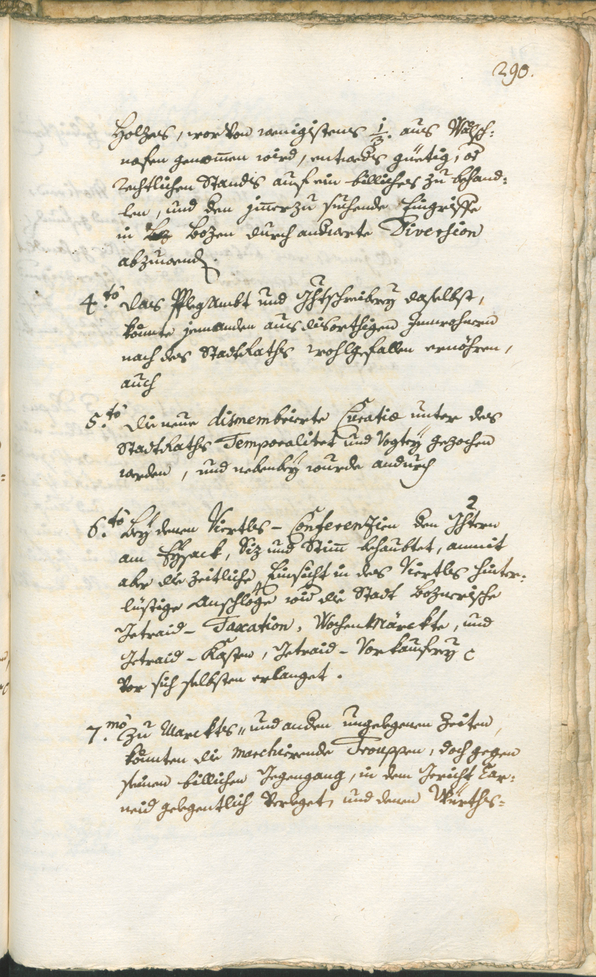 290.
Holzes, worvon wenigistens 1/3. aus Wälsch:
nofen genommen wird, entweders güetig, od
rechtlichen Standts auf ein billiches zu behand:
len, und den hinerzu suchende Eingriffe
in Bozen durch andwerte Diversion
abzuwend.
4.to Das Pflegambt und Ghtschreiberey daselbst,
könnte jemanden aus disorthigen Innwohnern
nach des StadtRaths wohlgefallen ernöhren,
auch
5.to Die neue dismembrierte Curatiæ unter des
StadtRaths Temporalitet und Vogtey gezochen
werden, und nebenbey wurde andurch
6.to Bey denen Viertls-Conferenzien den 2 Ghtern
am Eysack, Siz und Stimm behaubtet, anmit
aber die zeitliche Einsicht in des Viertls hinter:
lüstige Anschlöge wid die Stadt Boznerische
Getraid-Taxation, WochenMärckte, und
Getraid-Kästen, Getraid-Vorkaufrey c
vor sich selbsten erlanget.
7.mo Zu Marckts- und anden ungelegenen Zeiten,
könnten die marchierende Trouppen, doch gegen
seinen billichen Gegengang, in dem Gericht Car:
neid gelegentlich verleget, und denen Würths-